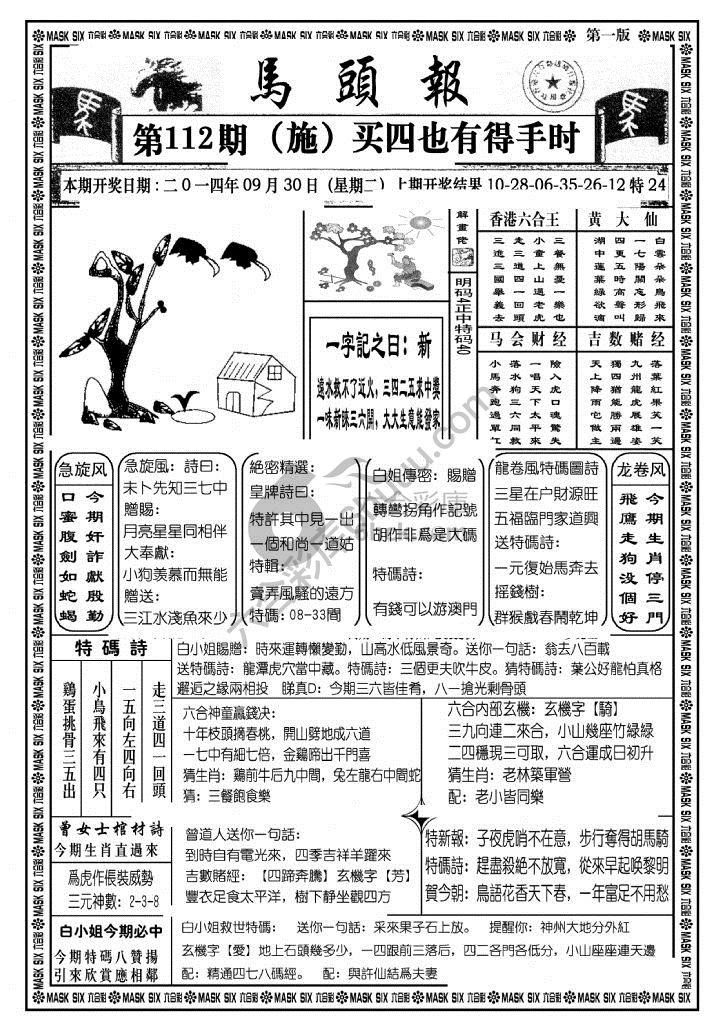 MASK SIX 六合彩
第一版
馬頭報
第112期（施）买四也有得手时
本期开奖日期:二0一四年09月30日（星期二）上期开奖结果10-28-06-35-26-12特24
解畫佬
明码4正中特码40
一字記之曰：新
遠水救不了近火，三四二五求中獎
一味新昧三六開，大大生意能發家
香港六合王
三走小三
進三童餐
三道上無
國四山憂
舉一遇一
義回老樂
去頭虎也
黄大仙
湖四一白
中更七雲
蓮五陽朵
葉時關朵
綠高忘鳥
欲聲形飛
滴叫歸來
马会财经
小落一險
馬水唱入
奔狗天虎
跑三下口
過六太魂
單同平驚
气救來失
吉数赌经
天獨九落
上四州葉
降猶龍紅
雨能虎果
它勝展笑
做兩雄一
主過姿笑
急旋风
口今
蜜期
腹奸
劍詐
如獻
蛇殷
蝎勤
急旋風：詩曰：
未卜先知三七中
贈賜：
月亮星星同相伴
大奉獻：
小狗羡慕而無能
贈送：
三江水淺魚來少
絶密精選：
皇牌詩曰：
特許其中見一出
一個和尚一道姑
特輯：
賣弄風騷的遠方
特碼：08-33間
白姐傳密：賜贈
轉彎拐角作記號
胡作非爲是大碼
特碼詩：
有錢可以游澳門
龍卷風特碼圖詩
三星在户財源旺
五福臨門家道興
送特碼詩：
一元復始馬奔去
摇錢樹：
群猴戲春鬧乾坤
龙卷风
飛今
鷹期
走生
狗肖
没停
個三
好門
特碼詩
鷄小一走
蛋鳥五三
挑飛向道
骨來左四
三有四一
五四向回
出只右頭
白小姐賜贈：時來運轉懶變勤，山高水低風景奇。送你一句話：翁去八百載
送特碼詩：龍潭虎穴當中藏。特碼詩：三個更夫吹牛皮。猜特碼詩：葉公好龍怕真格
邂逅之緣兩相投　睇真D：今期三六皆佳肴，八一搶光剩骨頭
六合神童贏钱决：
十年枝頭摘春桃，開山劈地成六道
一七中有細七倍，金鷄啼出千門喜
猜生肖：鷄前牛后九中間，兔左龍右中間蛇
猜：三餐飽食樂
六合内部玄機：玄機字【騎】
三九向連二來合，小山幾座竹緑緑
二四穩現三可取，六合運成日初升
猜生肖：老林築軍營
配：老小皆同樂
曾女士棺材詩
今期生肖直過來
爲虎作倀裝威勢
三元神數：2-3-8
曾道人送你一句話：
到時自有電光來，四季吉祥羊躍來
吉數賭經：【四蹄奔騰】玄機字【芳】
豐衣足食太平洋，樹下静坐觀四方
特新報：子夜虎哨不在意，步行奪得胡馬騎
特碼詩：趕盡殺絶不放寬，從來早起唤黎明
賀今朝：鳥語花香天下春，一年富足不用愁
白小姐今期必中
今期特碼八贊揚
引來欣赏應相鄰
白小姐救世特碼：　送你一句話：采來果子石上放。　提醒你：神州大地分外紅
玄機字【愛】地上石頭幾多少，一四跟前三落后，四二各門各低分，小山座座連天邊
配：精通四七八碼經。　配：與許仙結爲夫妻